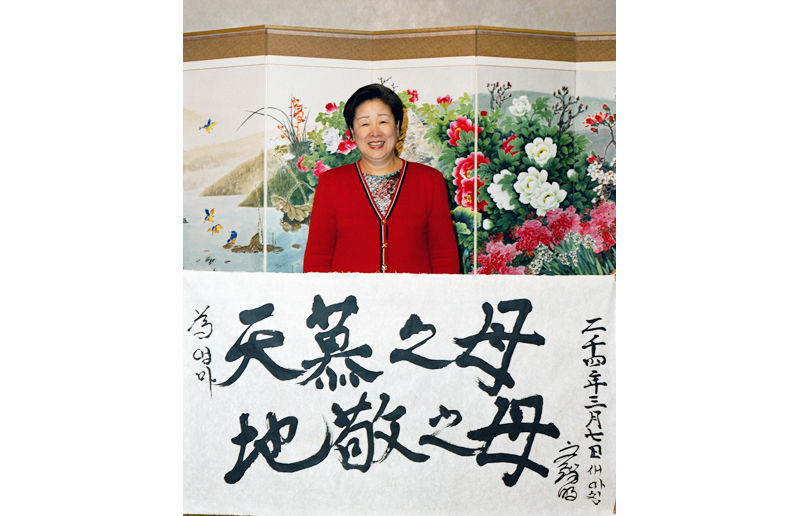 為 엄마
天慕之母
地敬之母
二千四年三月七日 새 아침
文鮮明